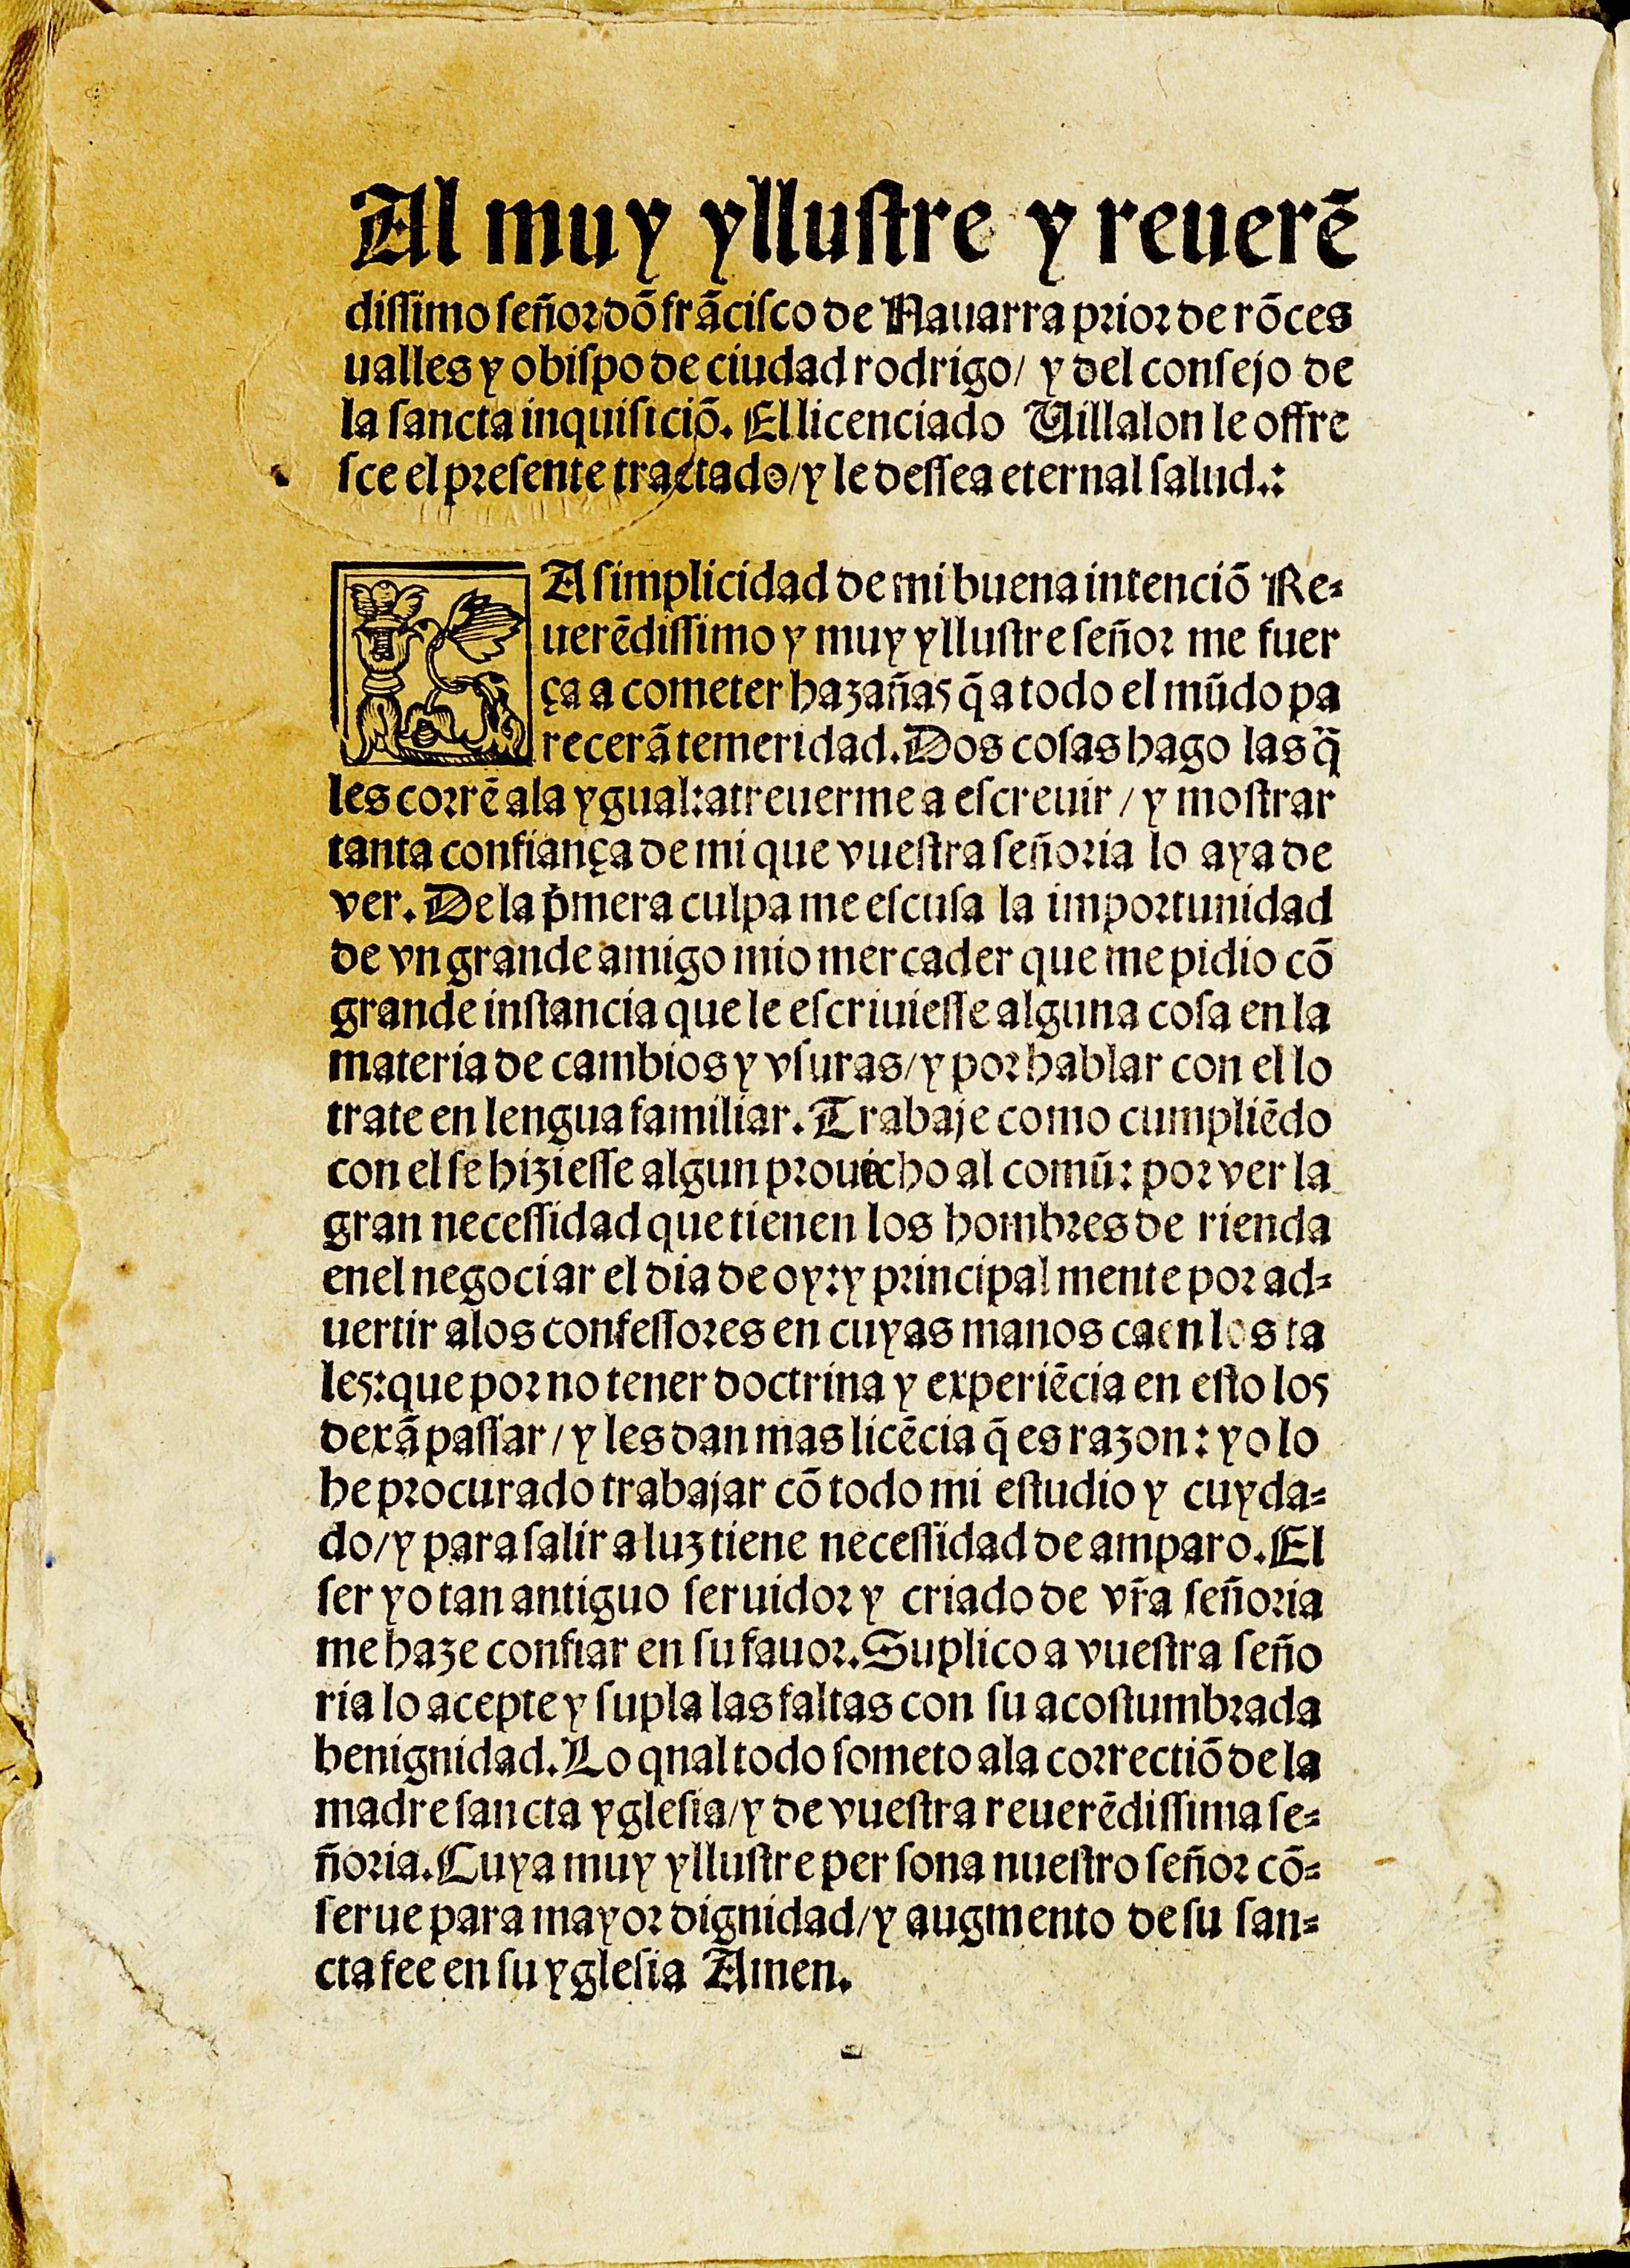 Al muy yllustre y reuerē
dissimo señor dō frācisco de Nauarra prior de rōces
ualles y obispo de ciudad rodrigo/ y del consejo de
la sancta inquisiciō. El licenciado Uillalon le offre
sce el presente tractado/y le dessea eternal salud.:
LA simplicidad de mi buena intenciō Re-
uerēdissimo y muy yllustre señor me fuer
ça a cometer hazañas q̄ a todo el mūdo pa
recerā temeridad. Dos cosas hago las q̄
les corrē ala ygual: atreuerme a escreuir / y mostrar
tanta confiança de mi que vuestra señoria lo aya de
ver. De la p̄mera culpa me escusa la importunidad
de vn grande amigo mio mercader que me pidio cō
grande instancia que le escriuiesse alguna cosa en la
materia de cambios y vsuras/y por hablar con el lo
trate en lengua familiar. Trabaje como cumpliēdo
con el se hiziesse algun prouecho al comū: por ver la
gran necessidad que tienen los hombres de rienda
enel negociar el dia de oy: y principalmente por ad-
uertir alos confessores en cuyas manos caen los ta
les: que por no tener doctrina y experiēcia en esto los
dexā passar/ y les dan mas licēcia q̄ es razon: yo lo
he procurado trabajar cō todo mi estudio y cuyda-
do/y para salir a luz tiene necessidad de amparo. El
ser yo tan antiguo seruidor y criado de vr̄a señoria
me haze confiar en su fauor. Suplico a vuestra seño
ria lo acepte y supla las faltas con su acostumbrada
benignidad. Lo qnal todo someto ala correctiō de la
madre sancta yglesia/y de vuestra reuerēdissima se-
ñoria. Cuya muy yllustre persona nuestro señor cō-
serue para mayor dignidad/y augmento de su san-
cta fee en su yglesia Amen.